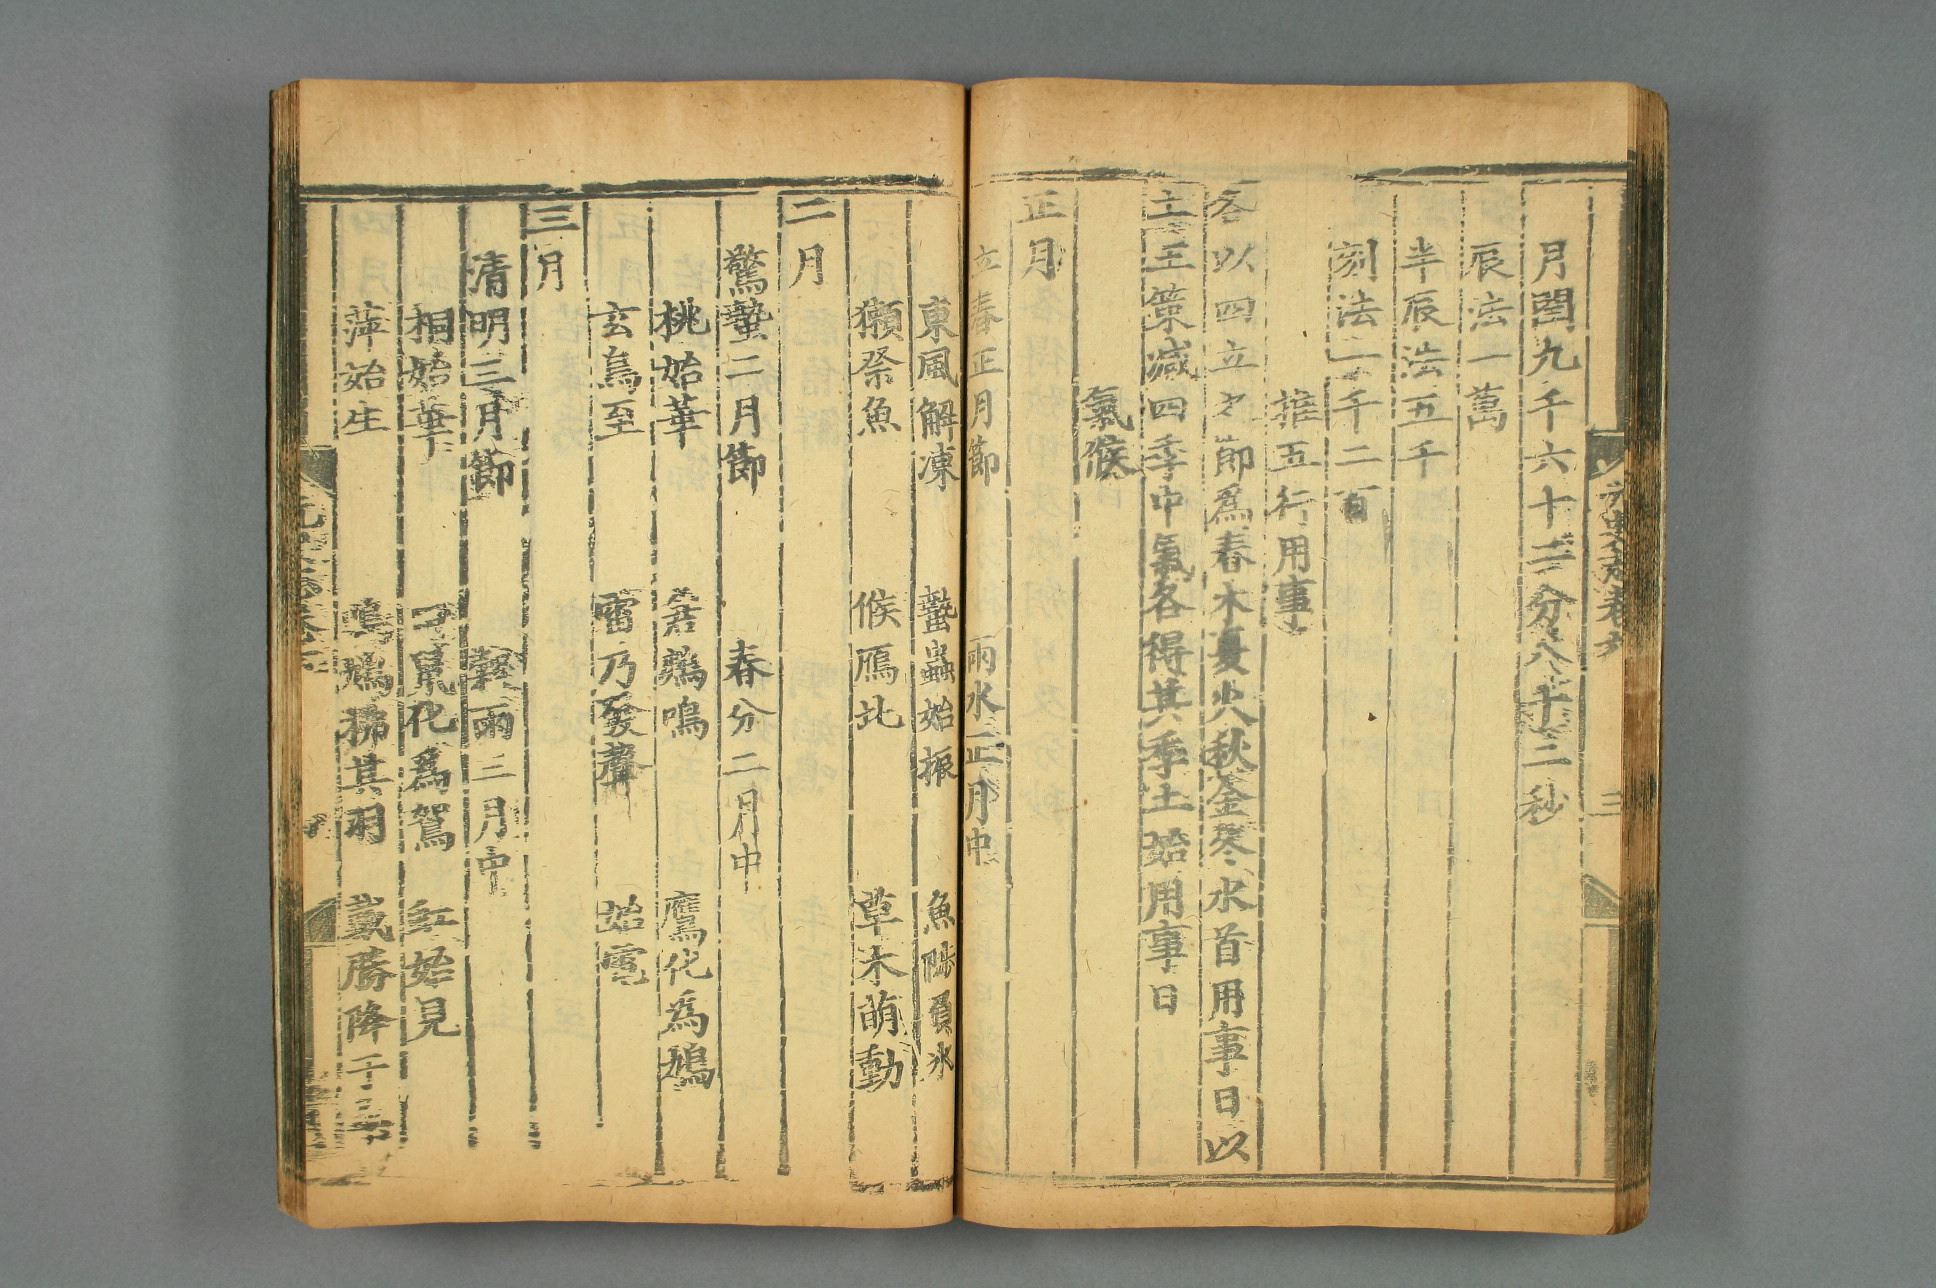 月閏九千六十二分八十二秒
辰法一萬
半辰法五千
刻法一千二百
推五行用事
各以四立之節爲春木夏火秋金冬水首用事日以
土王策減四季中氣各得其季土始用事日
氣候
正月
立春正月節 雨水正月中
東風解凍 蟄蟲始振 魚陟負冰
獺祭魚 候鴈北 草木萌動
二月
驚蟄二月節 春分二月中
桃始華 倉鶊鳴 鷹化爲鳩
玄鳥至 雷乃發聲 始電
三月
清明三月節 穀雨三月中
桐始華 田鼠化爲鴽 虹始見
萍始生 鳴鳩拂其羽 戴勝降于桑